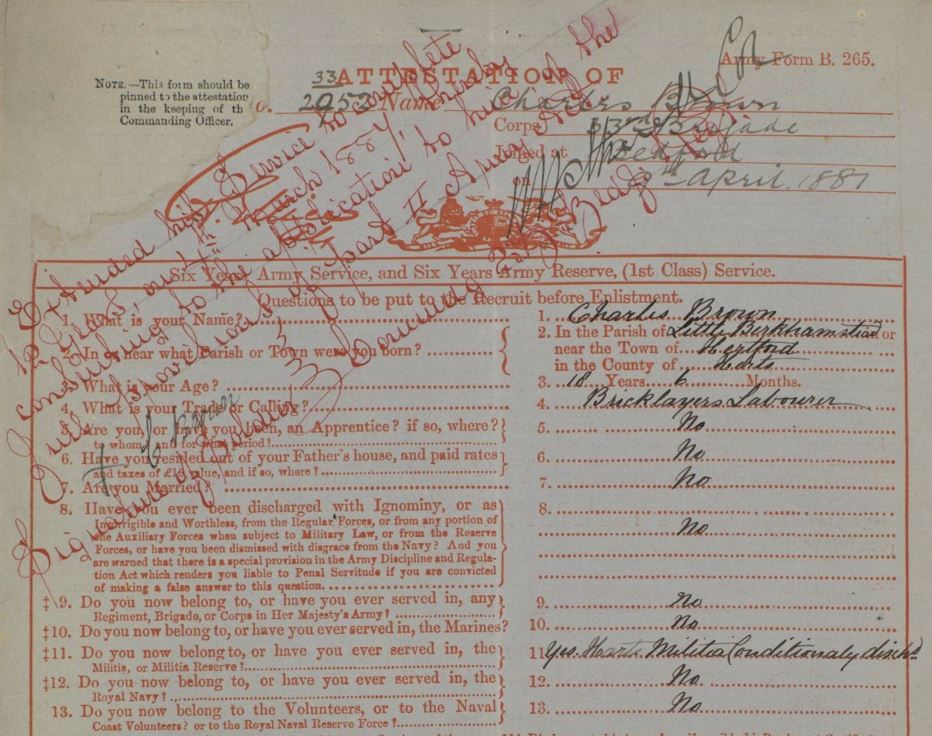 Army Form B. 265.
NOTE.—This form should be
pinned to the attestation
in the keeping of th
Commanding Officer.
ATTESTATION OF
o. 33 2053 Name Charles Brown
Corps 33rd Brigade
Joined at Bedford
on 9th April 1881
Extended his Service to complete
12 years, Army
consenting to the application to him of the
full provisions of Part II Army Act
Signature of Soldier
C Brown
Comdg Brigade
SIX YEARS ARMY SERVICE, AND SIX YEARS ARMY RESERVE, (1ST CLASS) SERVICE.
Questions to be put to the Recruit before Enlistment.
1. What is your Name?
1. Charles Brown
2. In or near what Parish or Town were you born?
2. In the Parish of Little Berkhamstead or
near the Town of Hertford
in the County of Herts
3. What is your Age?
3. 18 Years 6 Months.
4. What is your Trade or Calling?
4. Bricklayers Labourer
5. Are you, or have you been, an Apprentice? if so, where?
to whom, and for what period?
5. No
6. Have you resided out of your Father's house, and paid rates
and taxes of £10 value, and if so, where?
6. No
7. Are you Married?
7. No
8. Have you ever been discharged with Ignominy, or as
Incorrigible and Worthless, from the Regular Forces, or from any portion of
the Auxiliary Forces when subject to Military Law, or from the Reserve
Forces, or have you been dismissed with disgrace from the Navy? And you
are warned that there is a special provision in the Army Discipline and Regula-
tion Act which renders you liable to Penal Servitude if you are convicted
of making a false answer to this question.
8. No
‡9. Do you now belong to, or have you ever served in, any
Regiment, Brigade, or Corps in Her Majesty's Army?
9. No
‡10. Do you now belong to, or have you ever served in, the Marines?
10. No
‡11. Do you now belong to, or have you ever served in, the
Militia, or Militia Reserve?
11. Yes. Herts Militia Conditionaly disch'd
‡12. Do you now belong to, or have you ever served in, the
Royal Navy?
12. No
13. Do you now belong to the Volunteers, or to the Naval
Coast Volunteers? or to the Royal Naval Reserve Force?
13. No